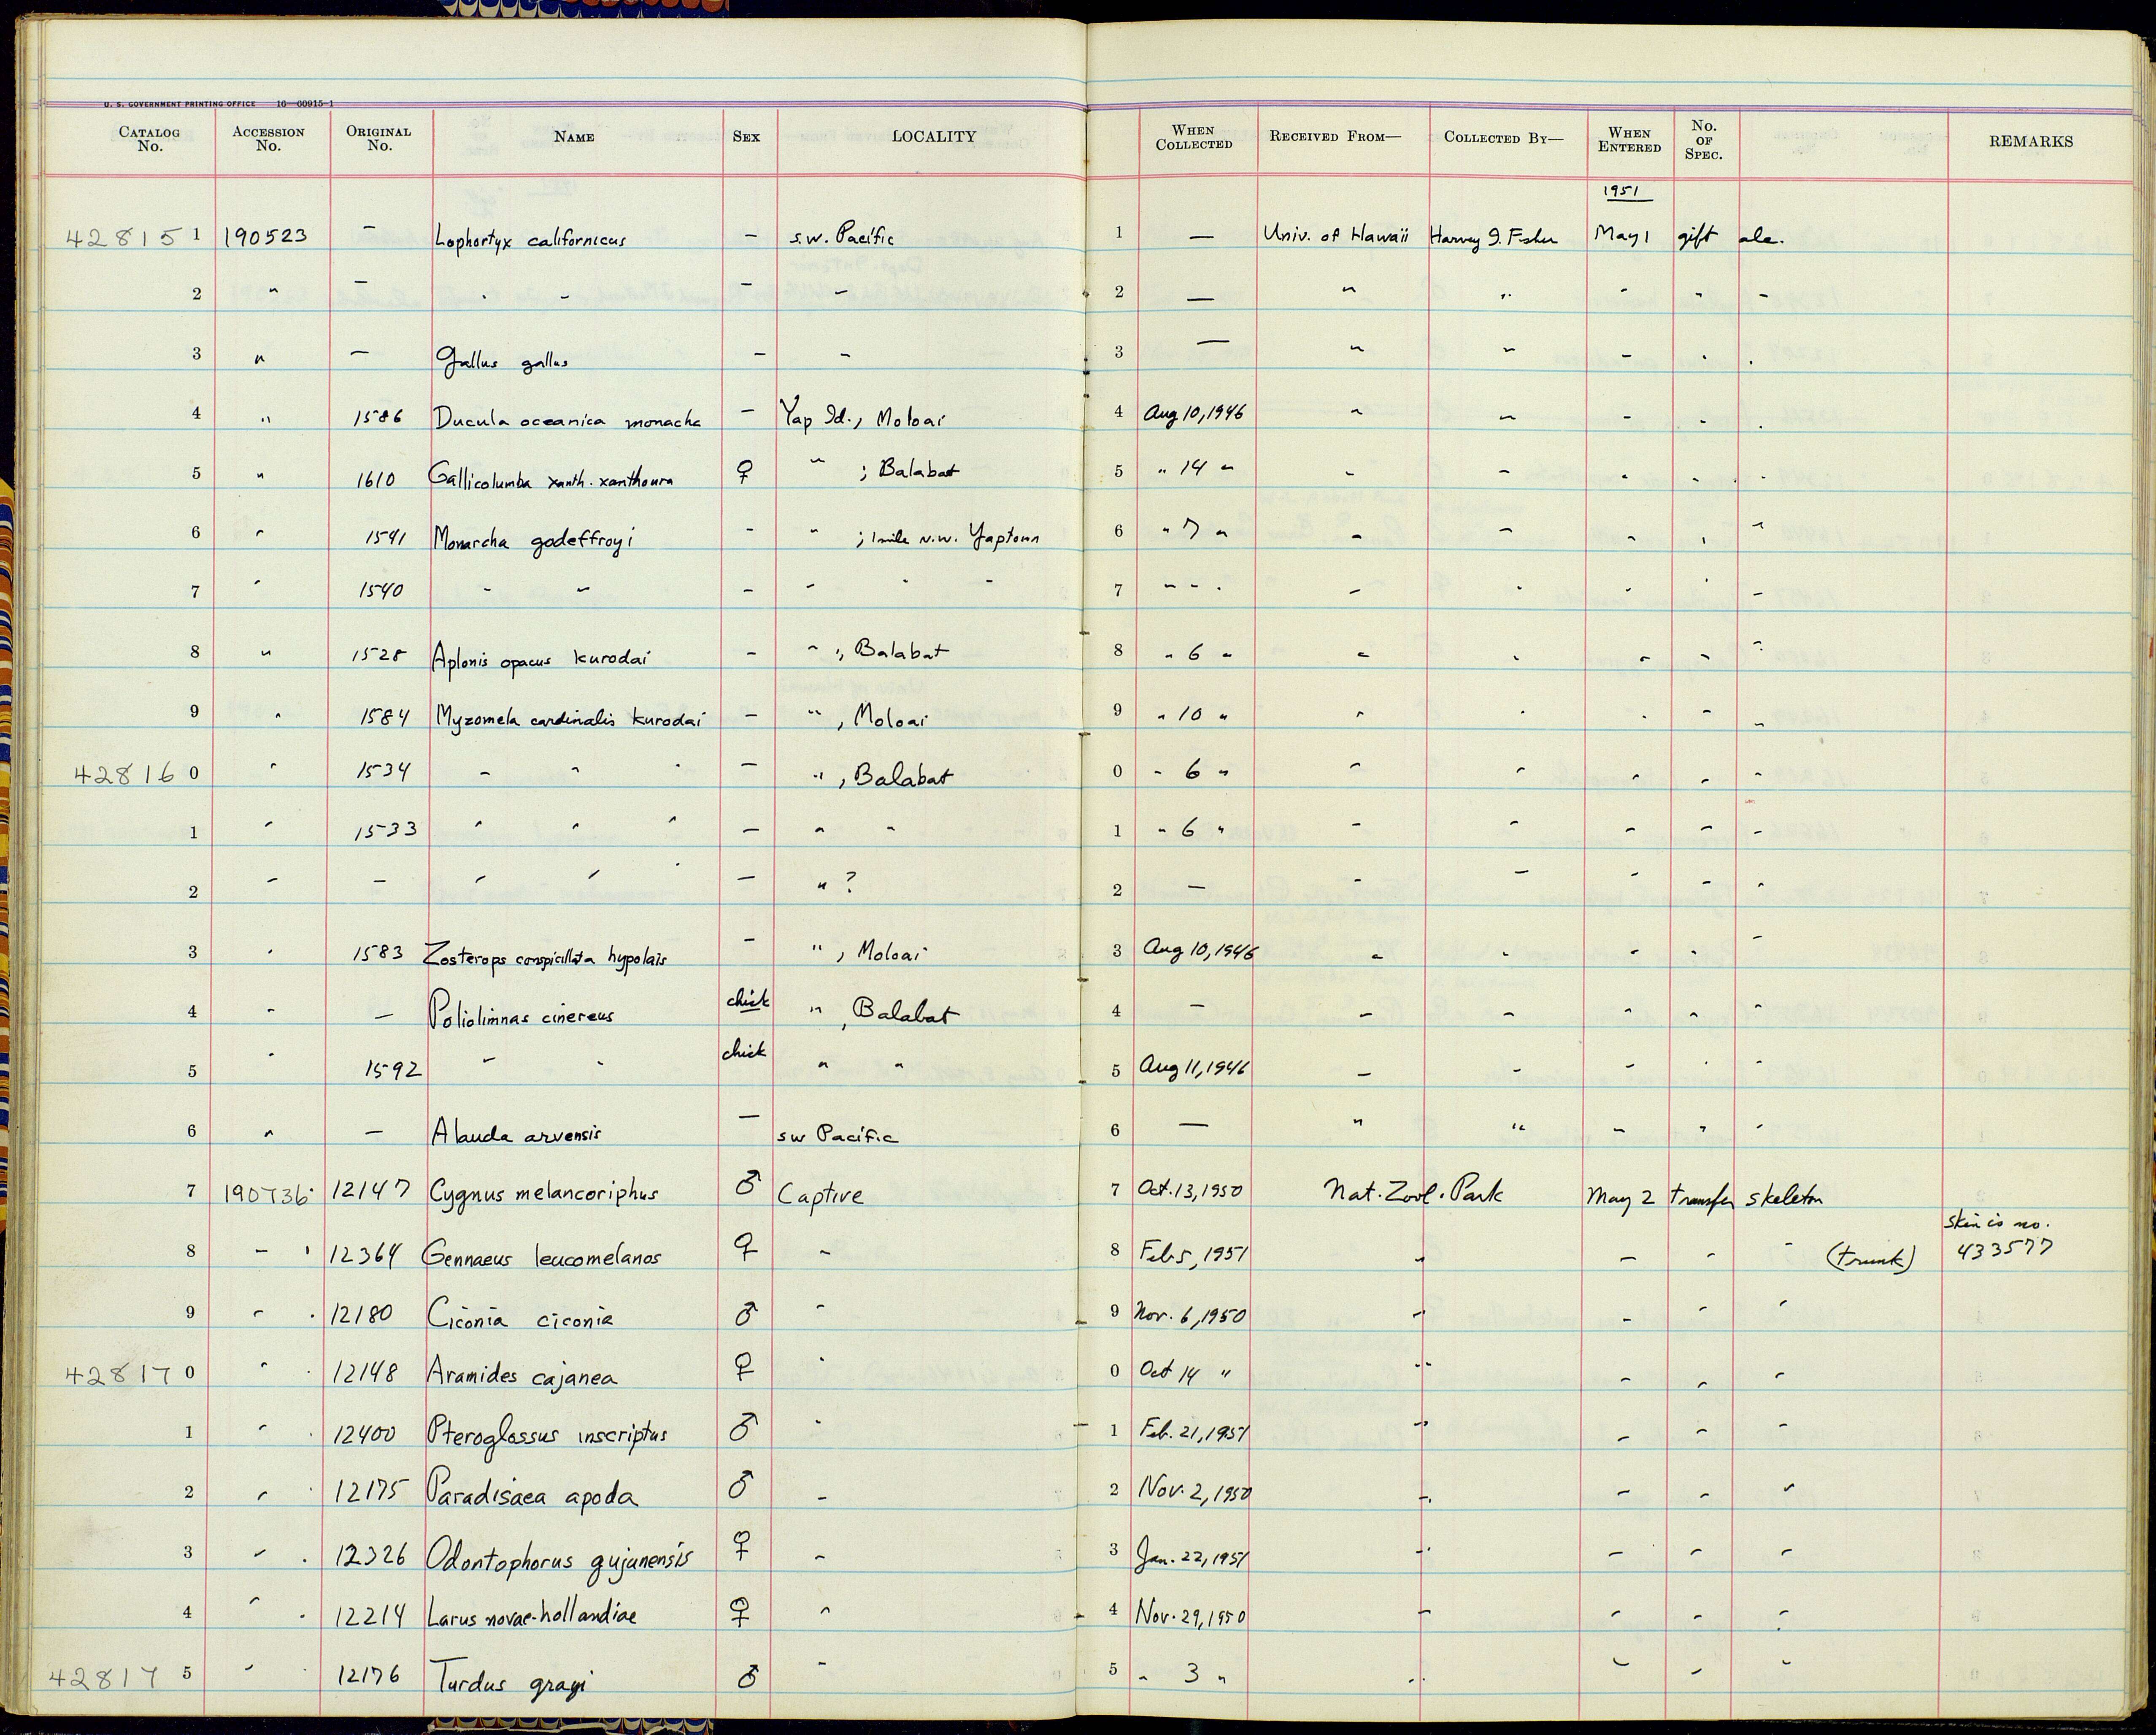 U. S. GOVERNMENT PRINTING OFFICE 16—60915-1
CATALOG No. ACCESSION No. ORIGINAL No. NAME SEX LOCALITY WHEN COLLECTED RECEIVED FROM— COLLECTED BY— WHEN ENTERED No. OF SPEC. REMARKS
1951
428151 190523 — Lophortyx californicus — s.w. Pacific 1 — Univ. of Hawaii Harvey I. Fisher May 1 gift alc.
2 " — " " — " 2 — " " " " "
3 " — Gallus gallus — " 3 — " " " " "
4 " 1586 Ducula oceanica monacha — Yap Id., Moloai 4 Aug 10, 1946 " " " " "
5 " 1610 Gallicolumba xanth. xanthoura ♀ " ; Balabat 5 " 14 " " " " " "
6 " 1541 Monarcha godeffroyi — " ; 1 mile N.W. Yaptown 6 " 7 " " " " " "
7 " 1540 " " — " " " 7 " " " " " " " "
8 " 1528 Aplonis opacus kurodai — " ; Balabat 8 " 6 " " " " " "
9 " 1584 Myzomela cardinalis kurodai — " , Moloai 9 " 10 " " " " " "
428160 " 1534 " " " — " , Balabat 0 " 6 " " " " " "
1 " 1533 " " " — " " 1 " 6 " " " " " "
2 " — " " " — " ? 2 — " " " " "
3 " 1583 Zosterops conspicillata hypolais — " , Moloai 3 Aug 10, 1946 " " " " "
4 " — Poliolimnas cinereus chick " , Balabat 4 — " " " " "
5 " 1592 " " chick " " 5 Aug 11, 1946 " " " " "
6 " — Alauda arvensis — sw Pacific 6 — " " " " "
7 190736 12147 Cygnus melancoriphus ♂ Captive 7 Oct. 13, 1950 Nat. Zool. Park May 2 transfer skeleton
8 " 12364 Gennaeus leucomelanos ♀ " 8 Feb 5, 1951 " " " " (trunk) skin is no. 433577
9 " 12180 Ciconia ciconia ♂ " 9 Nov. 6, 1950 " " " "
428170 " 12148 Aramides cajanea ♀ " 0 Oct 14 " " " " "
1 " 12400 Pteroglossus inscriptus ♂ " 1 Feb. 21, 1951 " " " "
2 " 12175 Paradisaea apoda ♂ " 2 Nov. 2, 1950 " " " "
3 " 12326 Odontophorus gujanensis ♀ " 3 Jan. 22, 1951 " " " "
4 " 12214 Larus novae-hollandiae ♀ " 4 Nov. 29, 1950 " " " "
428175 " 12176 Turdus grayi ♂ " 5 " 3 " " " " "